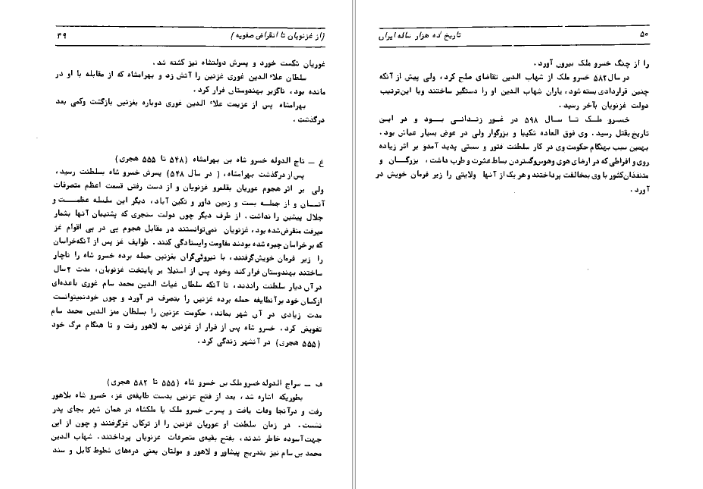 (از غزنویان تا انقراض صفویه)
۴۹
غوریان شکست خورد و پسرش دولتشاه نیز کشته شد.
سلطان علاء الدین غوری غزنین را آتش زد و بهرامشاه که از مقابله با او در
مانده بود، ناگزیر بهندوستان فرار کرد.
بهرامشاه پس از عزیمت علاء الدین غوری دوباره بغزنین بازگشت وکمی بعد
درگذشت.
ع ـ تاج الدوله خسرو شاه بن بهرامشاه (۵۴۸ تا ۵۵۵ هجری)
پس از درگذشت بهرامشاه، (در سال ۵۴۸) پسرش خسرو شاه بسلطنت رسید،
ولی بر اثر هجوم غوریان بقلمرو غزنویان و از دست رفتن قسمت اعظم متصرفات
آنسان و از جمله بست و زمین داور و تکین آباد، دیگر این سلسله عظمت و
جلال پیشین را نداشت. از طرف دیگر چون دولت سنجری که پشتیبان آنها بشمار
میرفت منقرض شده بود، غزنویان نمی‌توانستند در مقابل هجوم پی در پی اقوام غز
که بر خراسان چیره شده بودند مقاومت وایستادگی کنند. طوایف غز پس از آنکه خراسان
را زیر فرمان خویش گرفتند، با نیروئی گران بغزنین حمله برده خسرو شاه را ناچار
ساختند بهندوستان فرار کند وخود پس از استیلا بر پایتخت غزنویان، مدت ۲ سال
در آن دیار سلطنت راندند، تا آنکه سلطان غیاث الدین محمد سام غوری باعده‌ای
ازکسان خود بر آنطایفه حمله برده غزنین را بتصرف در آورد و چون خودنمیتوانست
مدت زیادی در آن شهر بماند، حکومت غزنین را بسلطان معز الدین محمد سام
تفویض کرد. خسرو شاه پس از فرار از غزنین به لاهور رفت و تا هنگام مرگ خود
(۵۵۵ هجری) در آنشهر زندگی کرد.
ف ـ سراج الدوله خسرو ملک بن خسرو شاه (۵۵۵ تا ۵۸۲ هجری)
بطوریکه اشاره شد، بعد از فتح غزنین بدست طایفه‌ی غز، خسرو شاه بلاهور
رفت و در آنجا وفات یافت و پسرش خسرو ملک یا ملکشاه در همان شهر بجای پدر
نشست. در زمان سلطنت او غوریان غزنین را از ترکان غزگرفتند و چون از این
جهت آسوده خاطر شدند، بفتح بقیه‌ی متصرفات غزنویان پرداختند. شهاب الدین
محمد بن سام نیز بتدریج پیشاور و لاهور و مولتان یعنی دره‌های شطوط کابل و سند
۵۰
تاریخ ده هزار ساله ایران
را از چنگ خسرو ملک بیرون آورد.
در سال ۵۸۲ خسرو ملک از شهاب الدین تقاضای صلح کرد، ولی پیش از آنکه
چنین قراردادی بسته شود، یاران شهاب الدین او را دستگیر ساختند وباین ترتیب
دولت غزنویان بآخر رسید.
خسرو ملک تا سال ۵۹۸ در غور زندانی بود و در این
تاریخ بقتل رسید. وی فوق العاده شکیبا و بزرگوار ولی در عوض بسیار عیاش بود.
بهمین سبب بهنگام حکومت وی در کار سلطنت فتور و سستی پدید آمدو بر اثر زیاده
روی و افراطی که در ارضای هوی وهوس وگستردن بساط عشرت و طرب داشت، بزرگان و
متنفذان کشور با وی بمخالفت پرداختند و هر یک از آنها ولایتی را زیر فرمان خویش در
آورد.